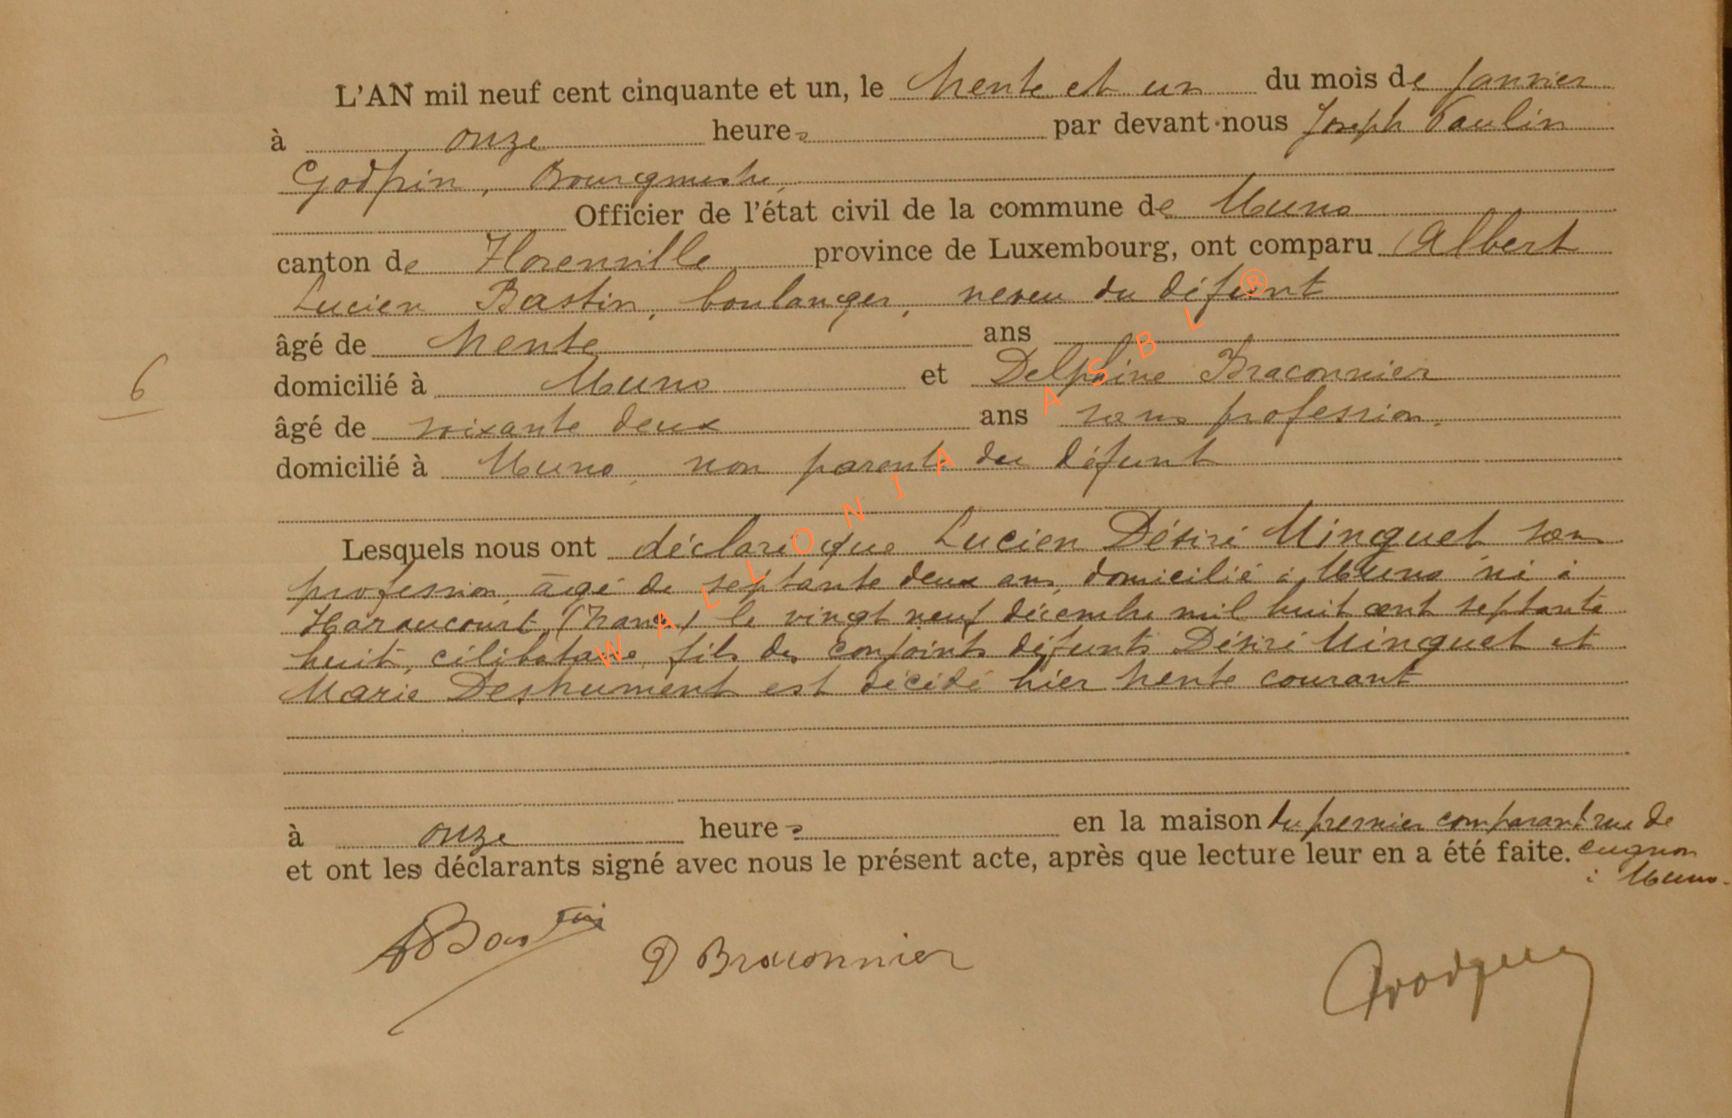 L'AN mil neuf cent cinquante et un, le trente et un du mois de Janvier
à onze heures par devant nous Joseph Paulin
Godfrin, Bourgmestre,
Officier de l'état civil de la commune de Muno
canton de Florenville province de Luxembourg, ont comparu Albert
Lucien Bastin, boulanger, neveu du défunt
âgé de trente ans
domicilié à Muno et Delphine Braconnier
6
âgé de soixante deux ans sans profession,
domicilié à Muno, non parente du défunt
Lesquels nous ont déclaré que Lucien Désiré Minguet sans
profession, âgé de septante deux ans, domicilié à Muno né à
Haraucourt (France) le vingt neuf décembre mil huit cent septante
huit, célibataire, fils des conjoints défunts Désiré Minguet et
Marie est décédé hier trente courant
à onze heures en la maison du premier comparant rue de
et ont les déclarants signé avec nous le présent acte, après que lecture leur en a été faite. Cugnon
à Muno.
ABastin D Braconnier
WALLONIA ASBL ®